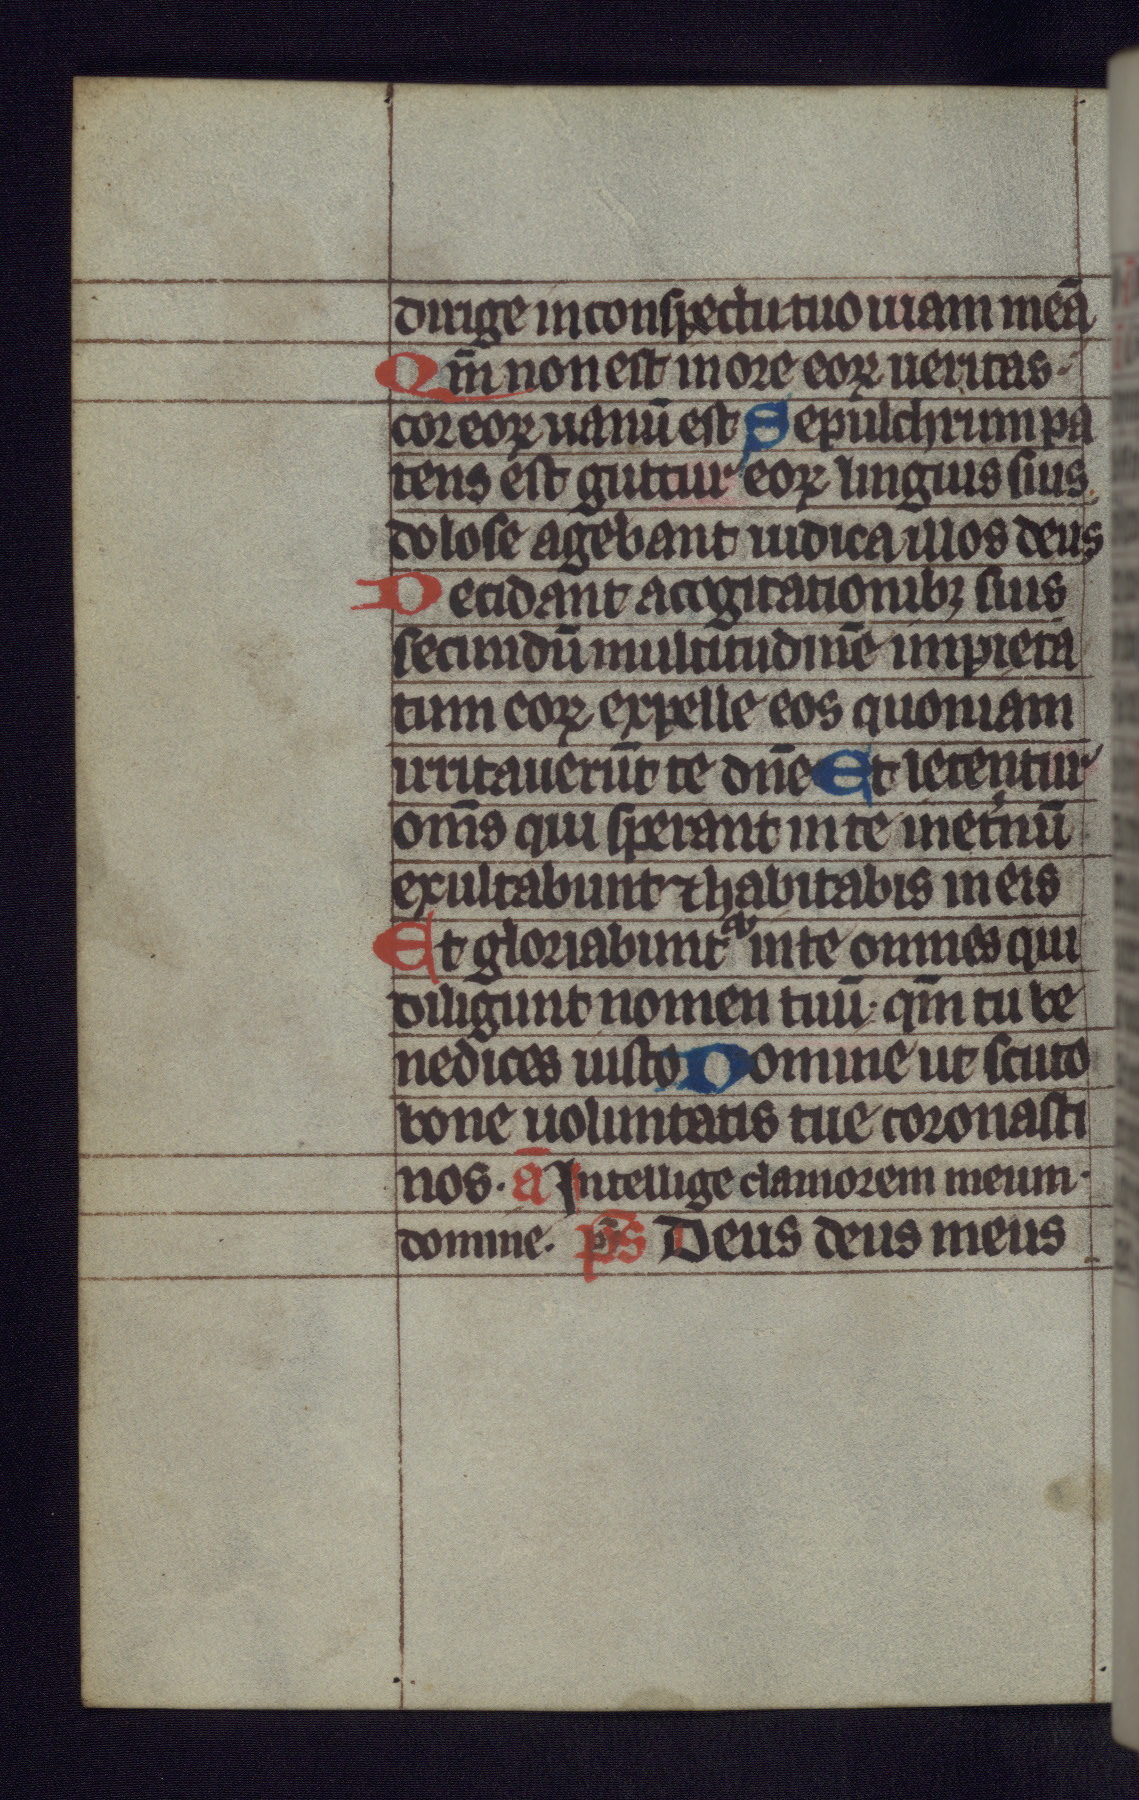 dirige in conspectu tuo uiam meā
Qm̄ non est in ore eoꝝ ueritas·
cor eoꝝ uanū est Sepulchrum pa
tens est guttur eoꝝ linguis suis
dolose agebant iudica illos deus
Decidant a cogitationibꝫ suis
secundū multitudinē impieta
tum eoꝝ expelle eos quoniam
irritauerūt te dn̄e Et letentur
om̄s qui sperant in te inet̾nū
exultabunt ⁊ habitabis in eis
Et gloriabuntᷣ in te omnes qui
diligunt nomen tuū· qm̄ tu be
nedices iusto Domine ut scuto
bone uoluntatis tue coronasti
nos· ā Intellige clamorem meum·
domine· p̄s Deus deus meus